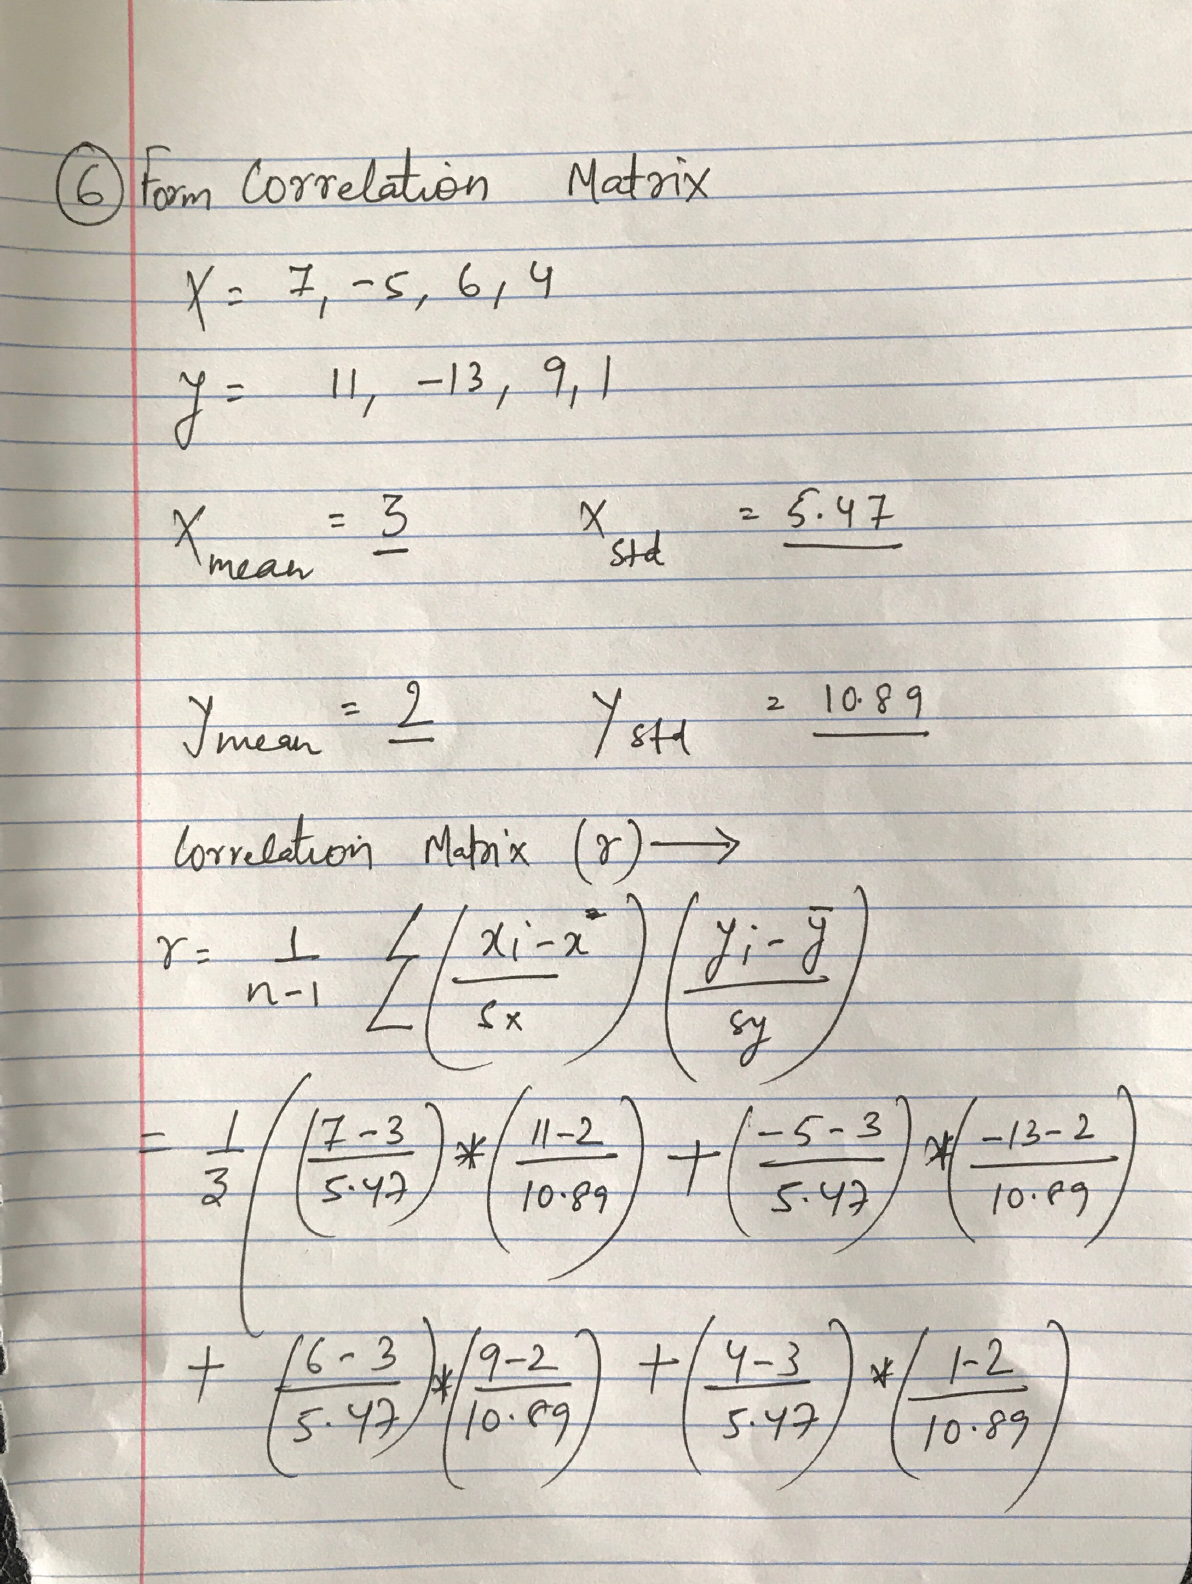 6 Form Correlation Matrix
X = 7, -5, 6, 4
y = 11, -13, 9, 1
X mean = 3 X std = 5.47
y mean = 2 Y std = 10.89
Correlation Matrix (r) →
r = 1/(n-1) Σ ((xi - x̄)/sx) ((yi - ȳ)/sy)
= 1/3 ( ((7-3)/5.47) * ((11-2)/10.89) + ((-5-3)/5.47) * ((-13-2)/10.89)
+ ((6-3)/5.47) * ((9-2)/10.89) + ((4-3)/5.47) * ((1-2)/10.89)